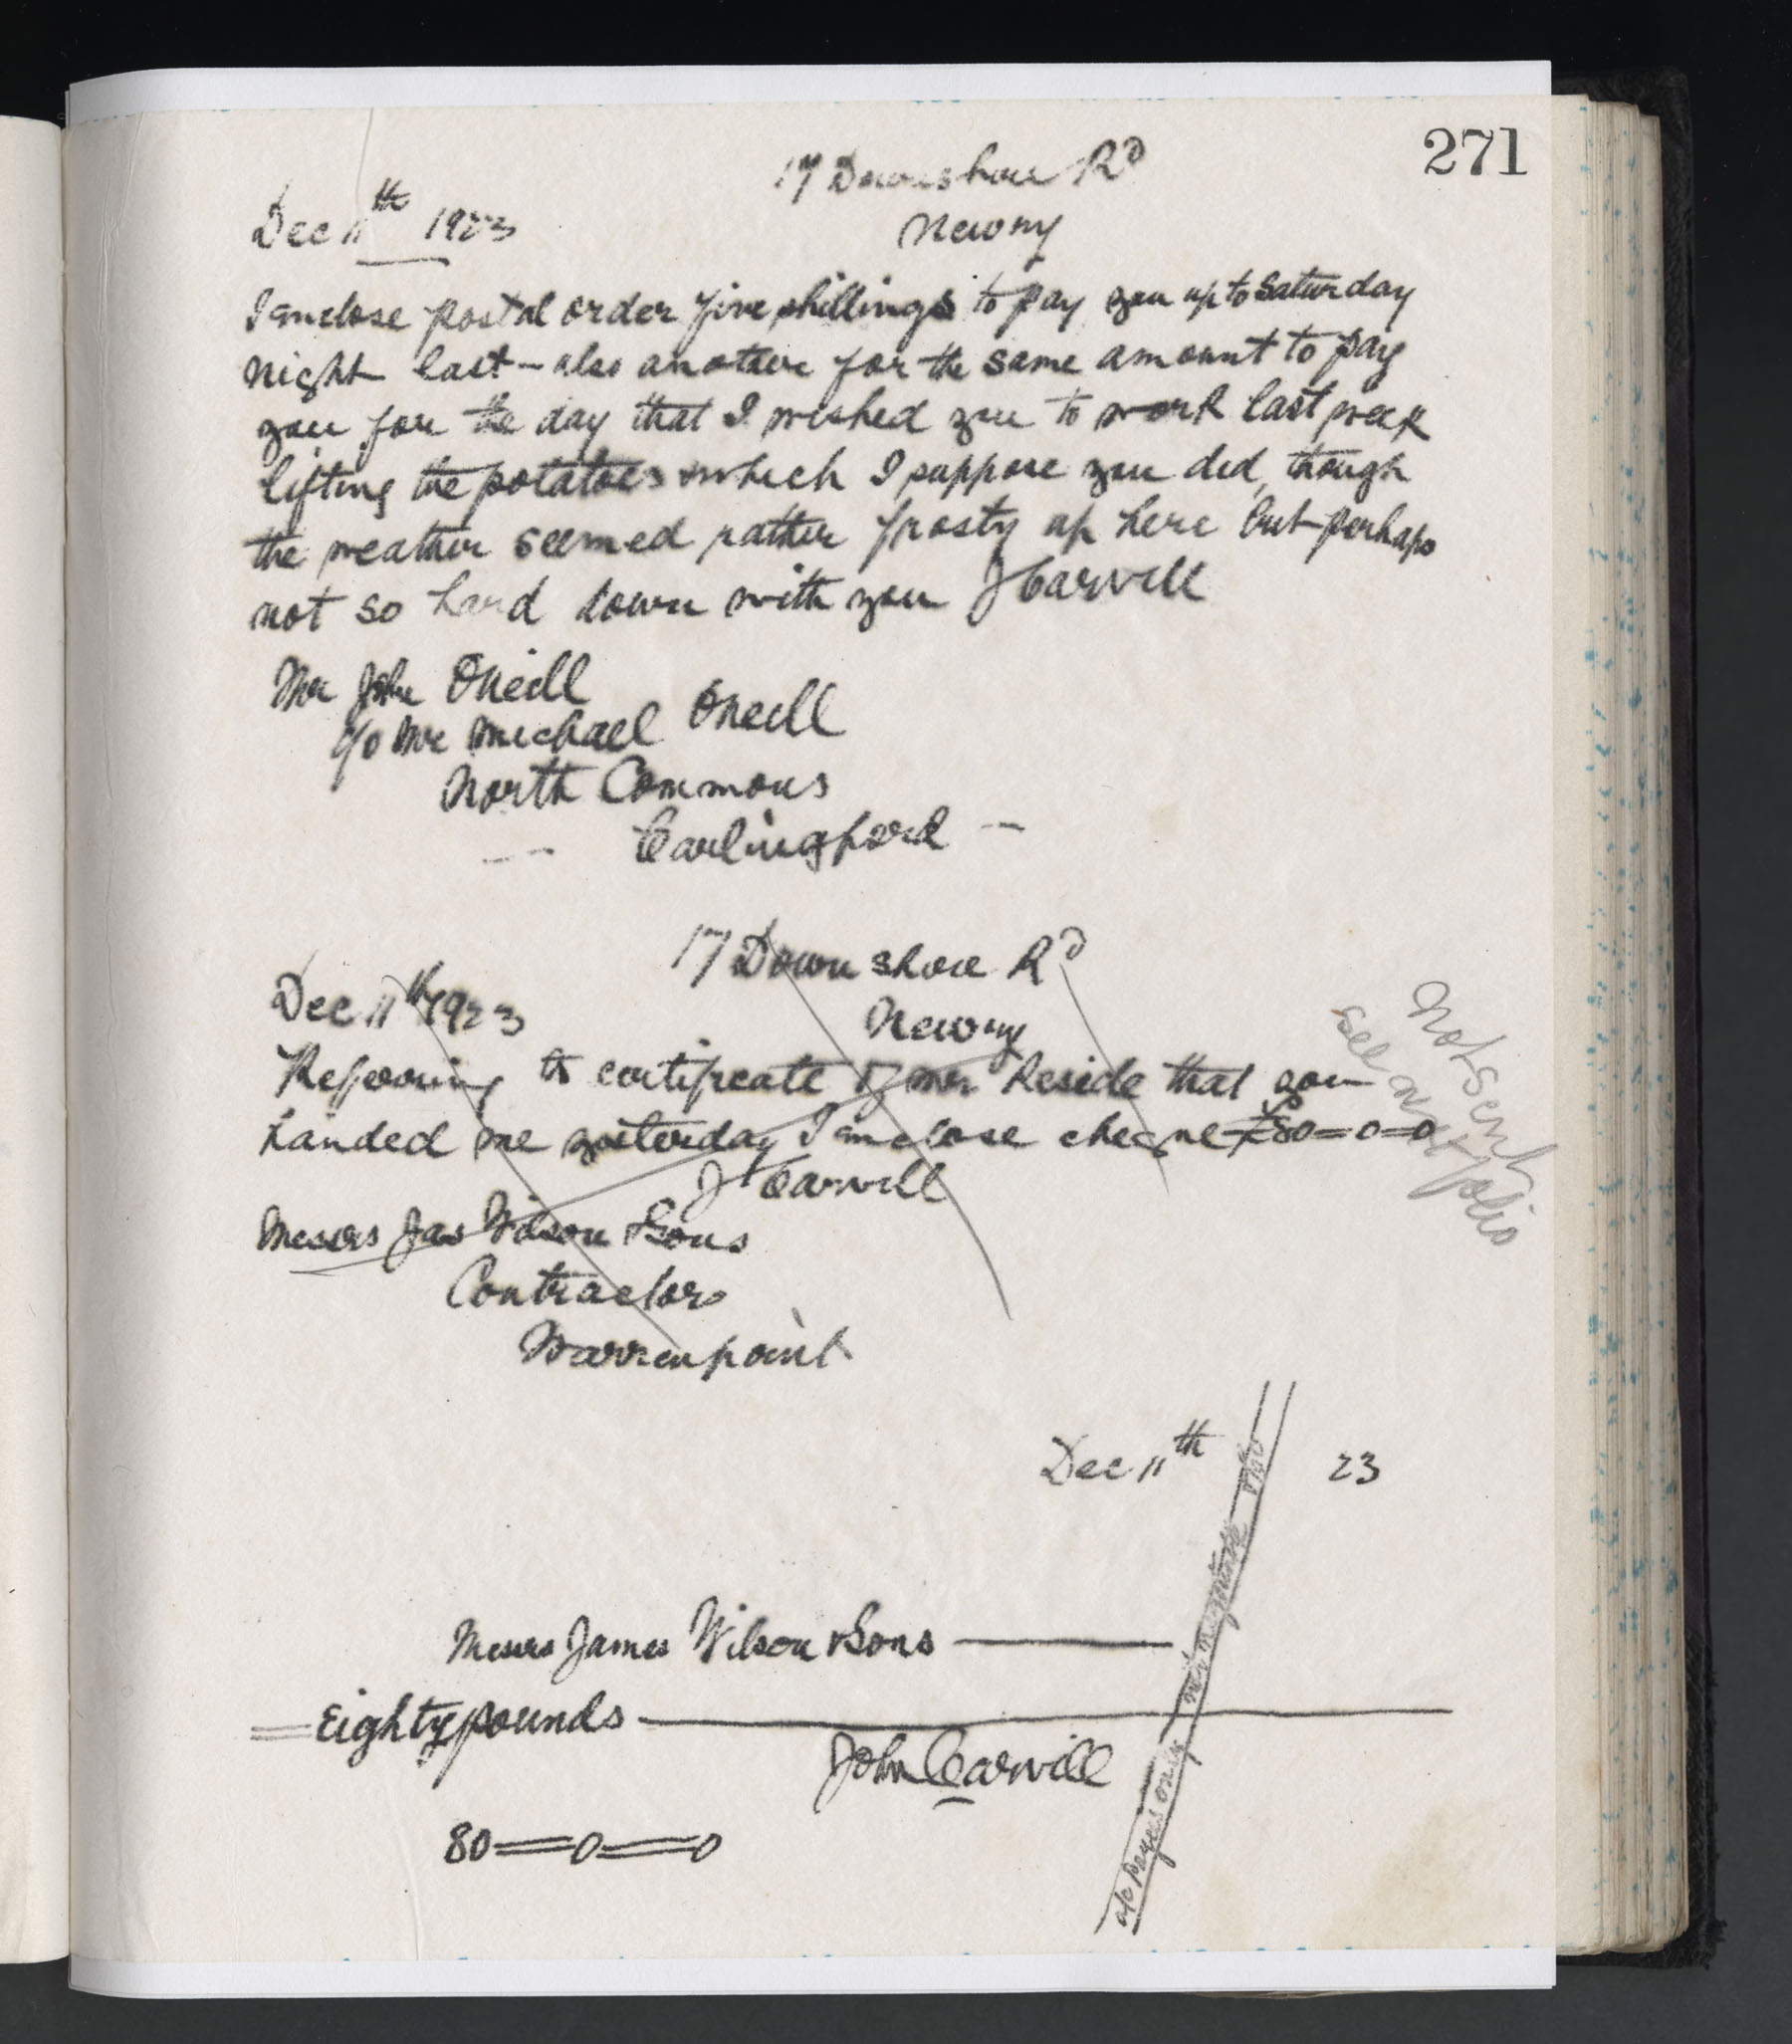 271
17 Downshire Rd
Dec 11th 1923
Newry
I enclose postal order five shillings to pay you up to Saturday
night last - also another for the same amount to pay
you for the day that I wished you to work last week
lifting the potatoes which I suppose you did, though
the weather seemed rather frosty up here but perhaps
not so hard down with you J Carvill
Mr John ONeill
c/o Mr Michael ONeill
North Commons
Carlingford
17 Downshire Rd
Dec 11th 1923
Newry
Referring to certificate of Mr Reside that you
handed me yesterday I enclose cheque £80=0=0
J Carvill
Messrs Jas Wilson & Sons
Contractors
Warrenpoint
Not sent
see next folio
Dec 11th 23
Messrs James Wilson & Sons
Eighty pounds
John Carvill
80=0=0
a/c payees only not negotiable